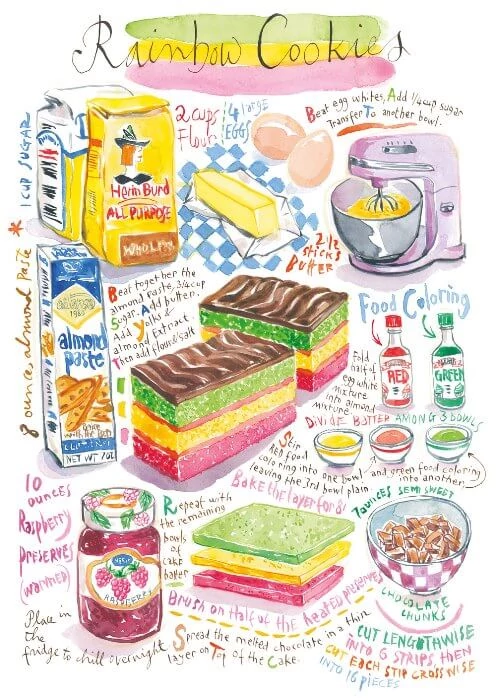 Rainbow Cookies
1 CUP SUGAR
Herin Burd
ALL PURPOSE
2 cups
Flour
4 large
EGGS
Beat egg whites, Add 1/4 cup sugar
Transfer To another bowl.
2 1/2
STICKS
BUTTER
* 8 ounces almond Paste
almond
paste
NET WT 7OZ
Beat together the
almond paste, 3/4 cup
Sugar. Add butter.
Add yolks &
almond Extract
Then add flour & salt
Food Coloring
RED
GREEN
Fold
half of
egg white
mixture
into almond
mixture
DIVIDE BUTTER AMONG 3 BOWLS
Stir
RED food
coloring into one bowl
leaving the 3rd bowl plain
and green food coloring
into another
Bake the layer for 8
10
OUNCES
Raspberry
PRESERVES
(warmed)
RASPBERRY
Repeat with
the remaining
bowls
of
cake
batter
Brush on Half of the heated preserves
7 ounces SEMI SWEET
CHOCOLATE
CHUNKS
Place in
the
fridge to chill overnight
Spread the melted chocolate in a thin
layer on Top of the Cake.
CUT LENGTHWISE
INTO 6 STRIPS, THEN
CUT EACH STIP CROSSWISE
INTO 16 PIECES